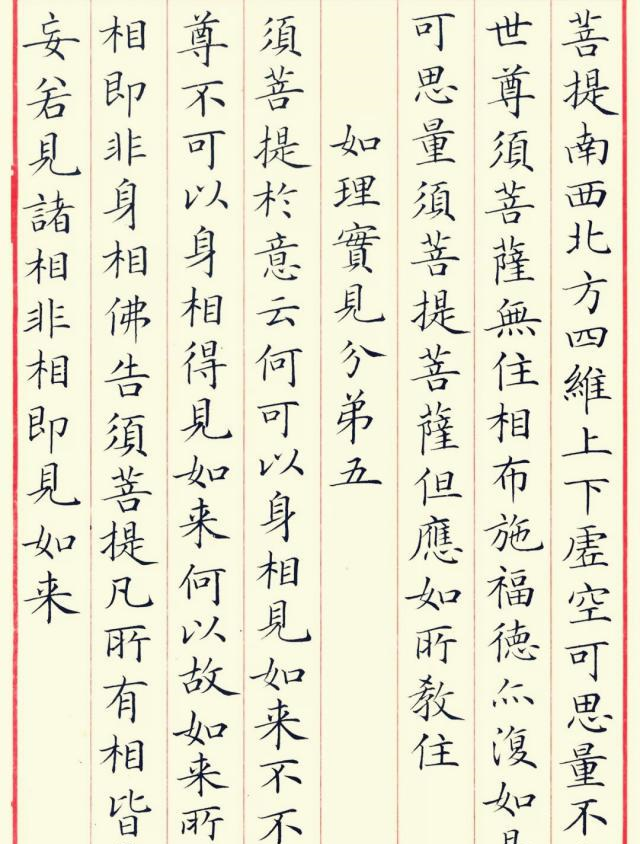 菩提南西北方四維上下虛空可思量不
世尊須菩薩無住相布施福德亦復如是
可思量須菩提菩薩但應如所教住
如理實見分弟五
須菩提於意云何可以身相見如来不不
尊不可以身相得見如来何以故如来所
相即非身相佛告須菩提凡所有相皆
妄若見諸相非相即見如来